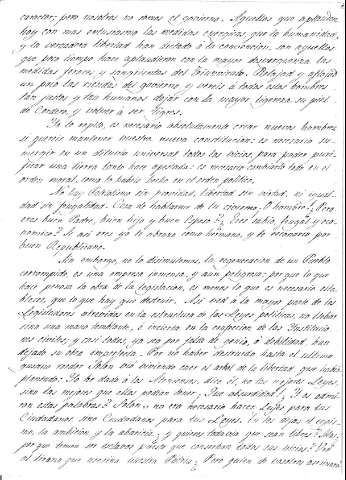 caracter; pero vosotros no somos el govierno. Aquellos que aplauden
hoy con mas entusiasmo las medidas energicas que la humanidad,
y la verdadera libertad han dictado á la convencion, son aquellos
que poco tiempo hace aplaudieron con la mayor desverguenza las
medidas feroces y sanguinarias del Relajad y afloxad
un poco las riendas del govierno, y vereis á todos estos hombres
tan justos y tan humanos dejar con la mayor ligereza su piel
de Cordero, y volver á ser Tigres.
Yo lo repito, es necesario absolutamente crear nuevos hombres
si quereis mantener vuestra nueva constitucion: es necesario su-
mergir en un diluvio universal todos los vicios, para poder puri-
ficar una tierra tanto bien apestada: es necesario cambiarlo todo en el
orden moral, como lo habeis hecho en el orden politico.
No hay Patriotismo sin providad, libertad sin virtud, ni igual-
dad sin frugalidad. Cesa de hablarme de tu civismo, O hombre! ¿Pero
eres buen Padre, buen hijo y buen Esposo? ¿Eres sabio, frugal y eco-
nomico? Si asi eres yo te abrazo como hermano, y te reconozco por
buen Republicano.
Sin embargo, no lo disimulemos, la regeneracion de un Pueblo
corrompido, es una empresa inmensa, y aun peligrosa; por que lo que
hace penosa la obra de la legislacion, es menos lo que es necesario esta-
blecer, que lo que hay que destruir. Asi es á la mayor parte de los
Legisladores atrevidos en la estructura de las Leyes politicas no daban
sino una mano temblante, é incierta en la confeccion de las Institucio-
nes civiles; y casi todos, ya sea por falta de genio, ó debilidad han
dejado su obra imperfecta. Por no haber destruido hasta el ultimo
gusano roedor Solon vio viviendo caer el arbol de la libertad, que habia
plantado. Yo he dado á los Atenienses, dice el, no las mejores Leyes,
sino las mejores que ellos podian tener. ¡Que absurdidad! ¿Y se admi-
ran estas palabras? Solon, no era necesario hacer Leyes para tus
Ciudadanos sino Ciudadanos para tus Leyes. Tu les dejas el egois-
mo, la ambicion y la abaricia, y quieres todavia que sean libres? Mas,
por que temen ser esclavos puesto que conserban todos sus vicios? Vino
el tirano que asesina vuestra Patria; Pero quien de vosotros